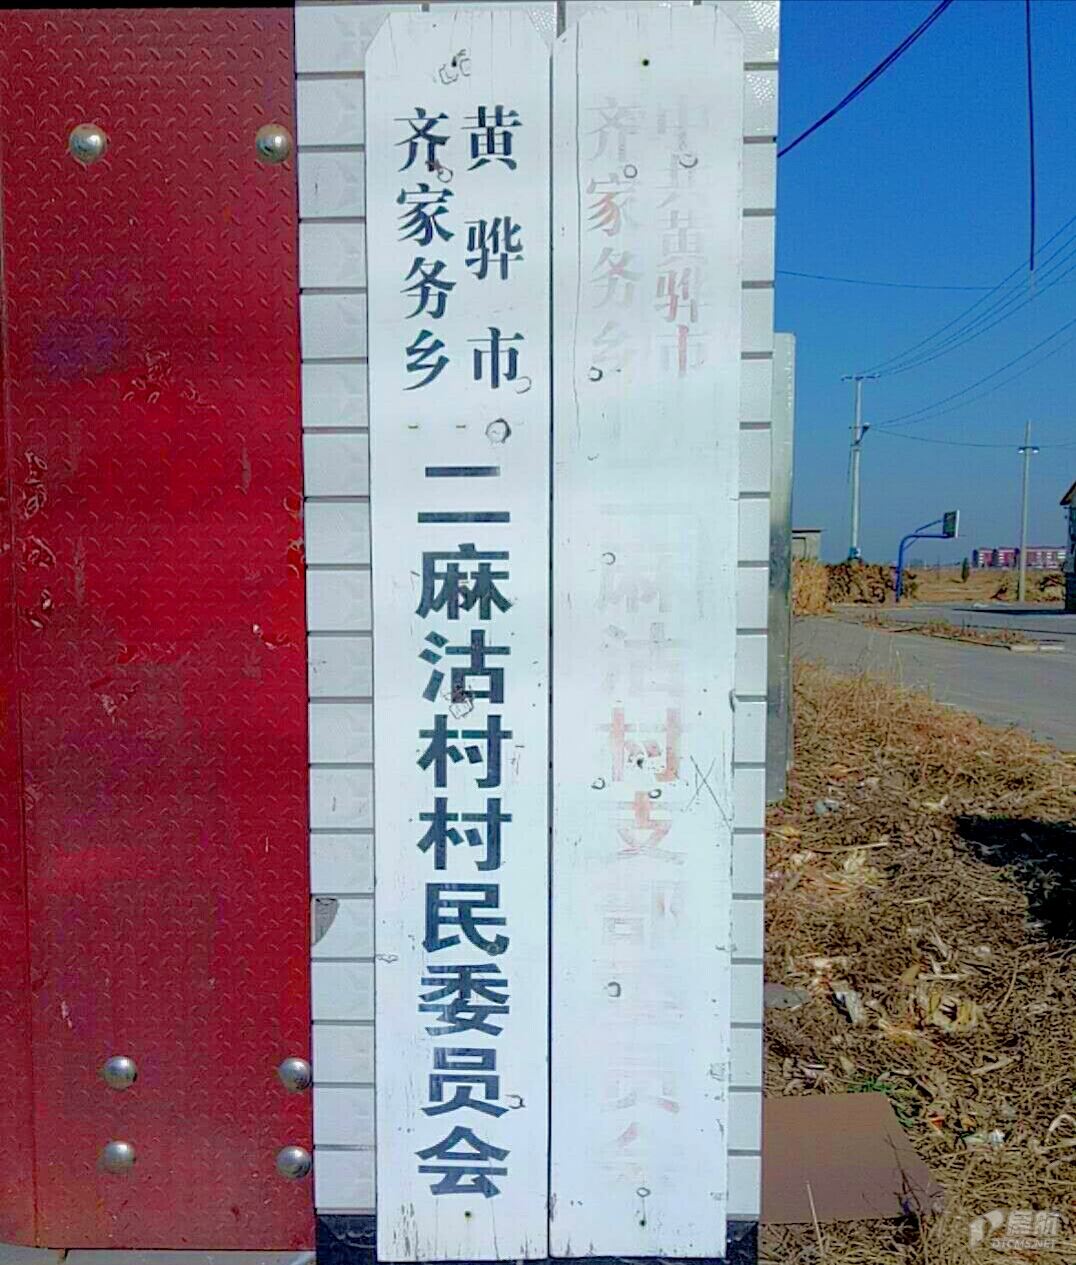 黄骅市
齐家务乡
二麻沽村村民委员会
中共黄骅市
齐家务乡
二麻沽村支部委员会
DTCMS.NET